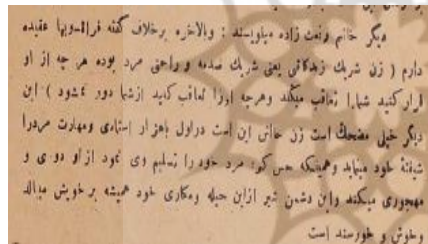 دیگر خانم رفعت زاده مینویسند : وبالاخره برخلاف گفته فرانسویها عقیده
دارم ( زن شریک زندگانی یعنی شریک صدمه و راحتی مرد بوده هر چه از او
فرار کنید شما را تعاقب میکند وهرچه اورا تعاقب کنید ازشما دور نمیشود ) این
دیگر خیلی مضحک است زن حالش این است دراول باهزار استادی ومهارت مردرا
شیفتهٔ خود مینماید وهمینکه حس کرد مرد خود را تسلیم وی نمود از او دوری و
مهجوری میکند واین دشمن شیر ازاین حیله ومکاری خود همیشه برخویش میبالد
وخوش و خورسند است